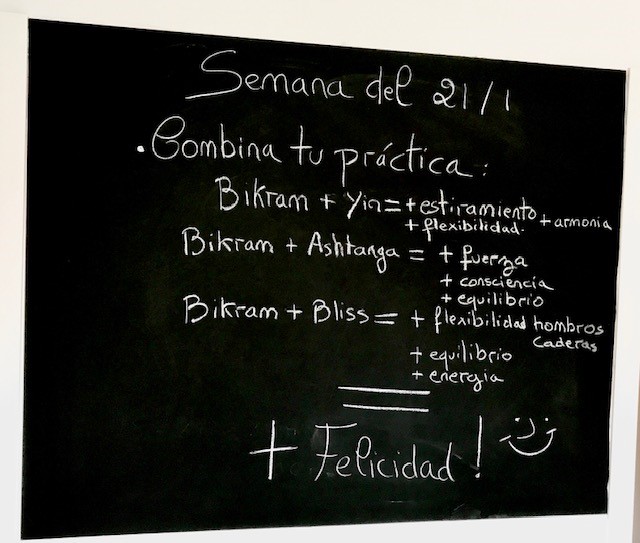 Semana del 21/1
• Combina tu práctica:
Bikram + Yin = + estiramiento + armonia
+ flexibilidad.
Bikram + Ashtanga = + fuerza
+ consciencia
+ equilibrio
Bikram + Bliss = + flexibilidad hombros
caderas
+ equilibrio
+ energia
=
+ Felicidad! :)